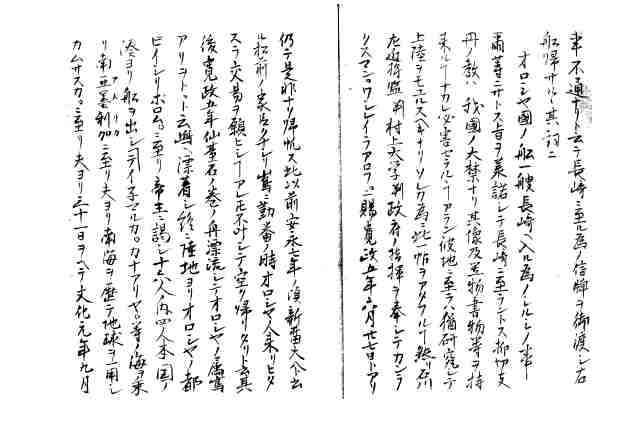 事不通ナリト云テ長崎ニ至ル為ノ信牌ヲ御渡シ右
船帰サル其詞ニ
オロシヤ國ノ船一艘長崎ヘ入ル為ノシルシノ事
爾等ニサトス旨ヲ承諾シテ長崎ニ至ラントス抑切支
丹ノ教ハ我國ノ大禁ナリ其像及器物書物等ヲ持
来ルヿナカレ必害セラルヿアラン彼地ニ至ラハ猶研究シテ
上陸ヲモユルスヘキナリソレカ為ニ此一帖ヲアタフルヿ然リ
石川将監判村上大学判政府ノ指揮ヲ奉シテカシラ
リスマンワシレイラアロフニ賜寛政五年六月廿七日トアリ
仍テ是非ナク帰帆ス此以前安永七年ノ頃新苗
ル松前ノ家臣クナシリ嶌ニ勤番ノ時オロシヤ人来リヒタ
スラ交易ヲ願ヒシヿアレ𪜈不叶シテ空ク帰リタリト云其
後寛政五年仙臺石ノ巻ノ舟漂流シテオロシヤノ属嶌
アリヲトヽ云嶼ニ漂着シ終ニ陸地ヨリオロシヤノ都
ビイシリボロムニ至リ帝王ニ謁シ十六人ノ内四人本國ノ
湊ヨリ船ヲ出シデイ子マルカ。カナアリヤ。等ノ海ヲ乗
リ南亜墨利加ニ至リ夫ヨリ南海ヲ歴テ地球ヲ一周シ
カムサスカニ至リ夫ヨリ三十一日ヲヘテ文化元年九月